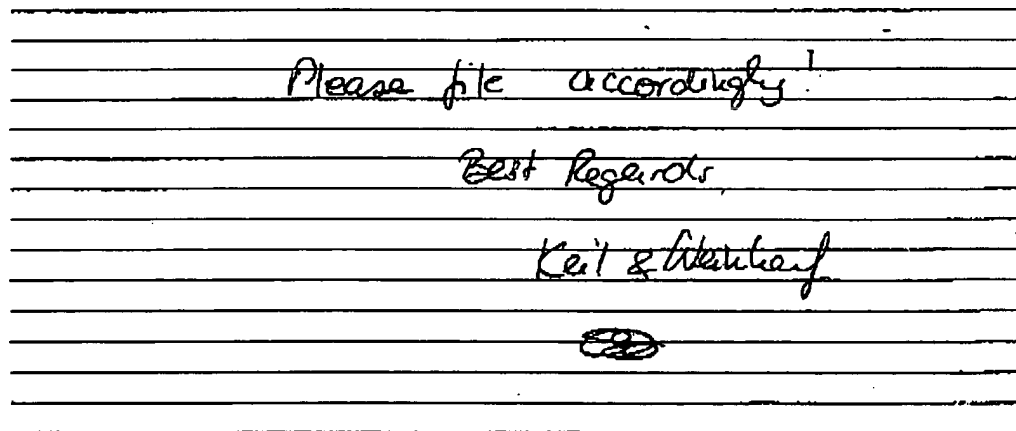 Please file accordingly!
Best Regards,
Keil &